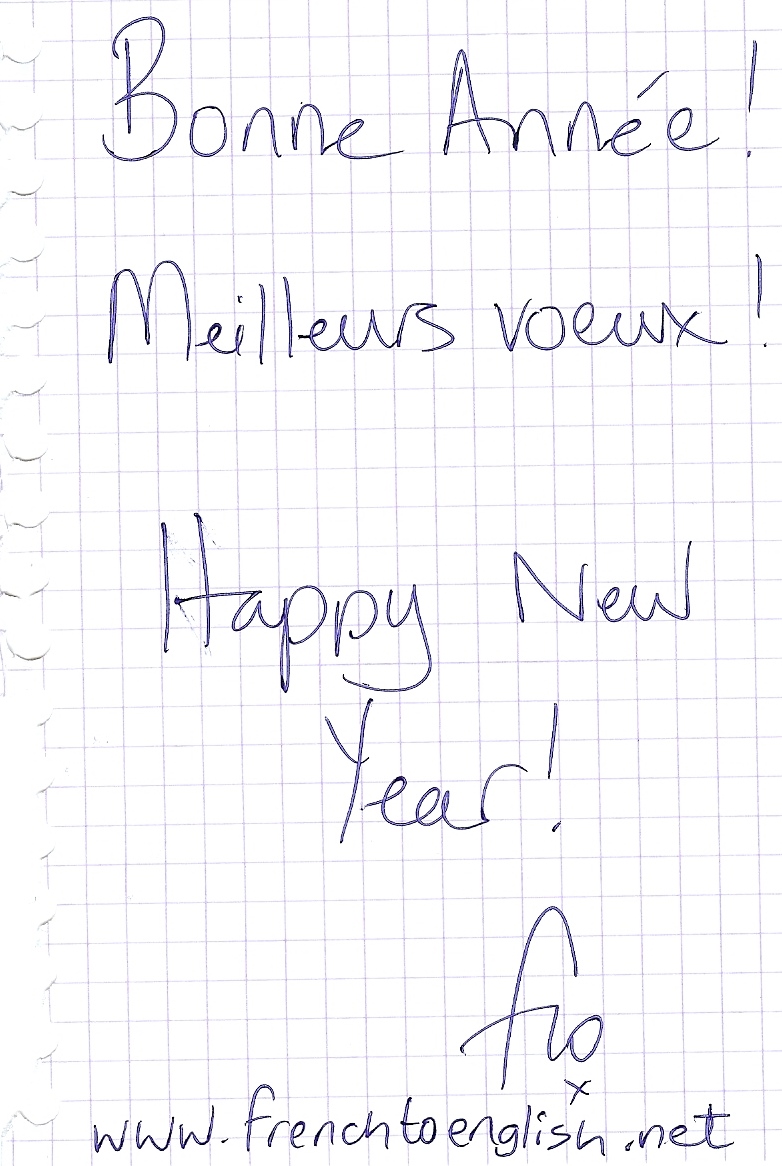 Bonne Année!
Meilleurs voeux!
Happy New
Year!
flo
x
www.frenchtoenglish.net